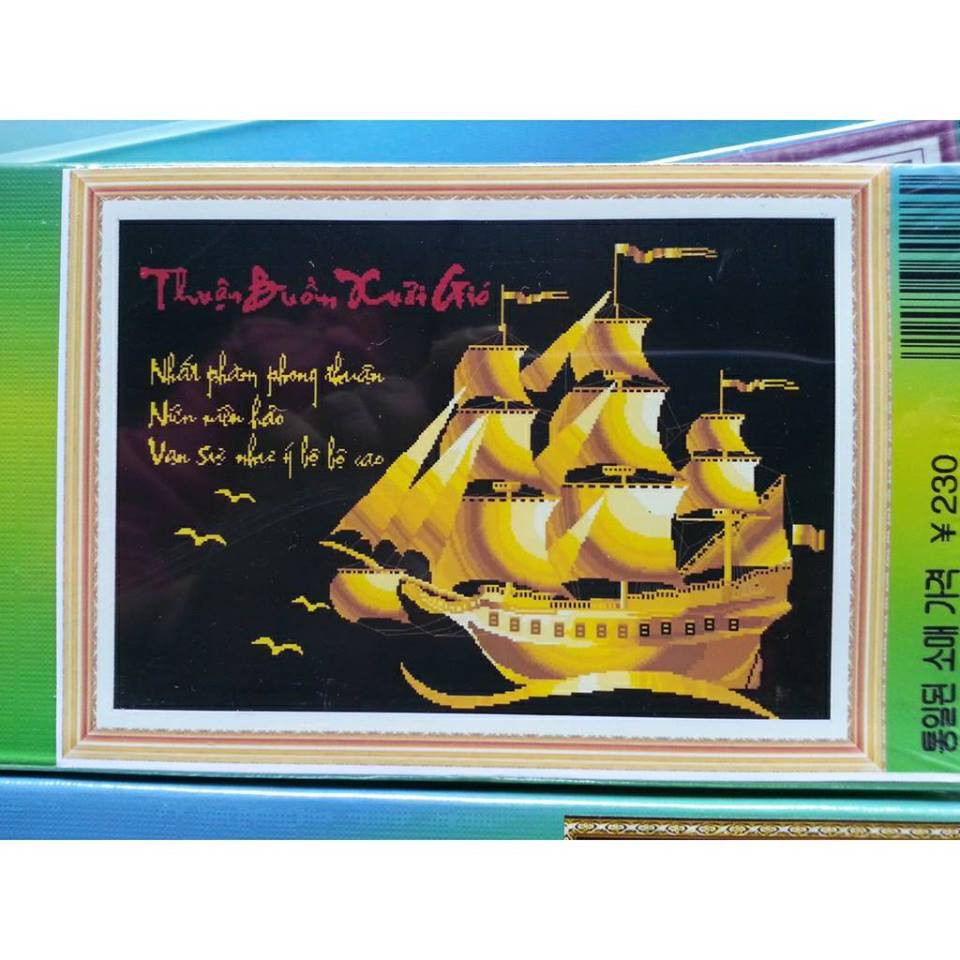 Thuận Buồm Xuôi Gió
Nhất phàm phong thuận
Niên niên hảo
Vạn sự như ý bộ bộ cao
통일된 소매 가격 ￥230